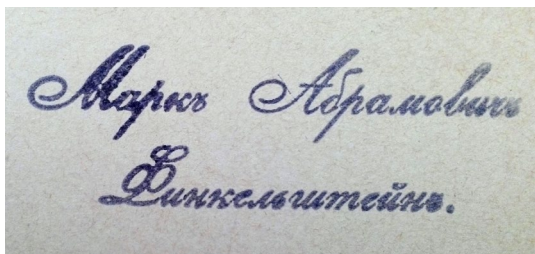 Маркъ Абрамовичъ
Финкельштейнъ.